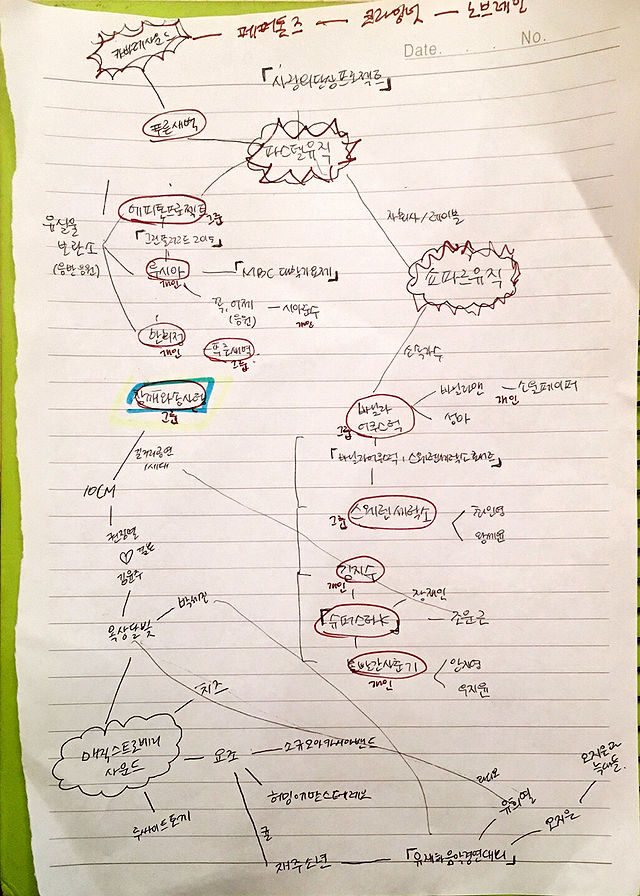 카바레사운드 — 페퍼톤즈 — 크라잉넛 — 노브레인
Date. . . No.
「사랑의단상프로젝트」
푸른새벽
파스텔뮤직
에피톤프로젝트
그룹
자회사/레이블
유실물
보관소
(음반응원)
루시아
개인
「MBC 대학가요제」
쇼파르뮤직
꼭, 어제
(응원)
시아준수
개인
한희정
개인
푸른새벽
그룹
소속가수
참깨와솜사탕
그룹
바닐라
어쿠스틱
그룹
바닐라맨
개인
스무페이퍼
성아
길거리공연
1세대
10CM
권정열
♡ 결혼
김윤주
스웨덴세탁소
그룹
최인영
왕세윤
김지수
개인
장재인
「슈퍼스타K」
조문근
옥상달빛
박세진
볼빨간사춘기
개인
안지영
우지윤
치즈
매직스트로베리
사운드
요조
소규모아카시아밴드
허밍어반스테레오
선우정아
투사이드토끼
귤
재주소년
「유재하음악경연대회」
라디오
유희열
오지은
오지은과
늑대들